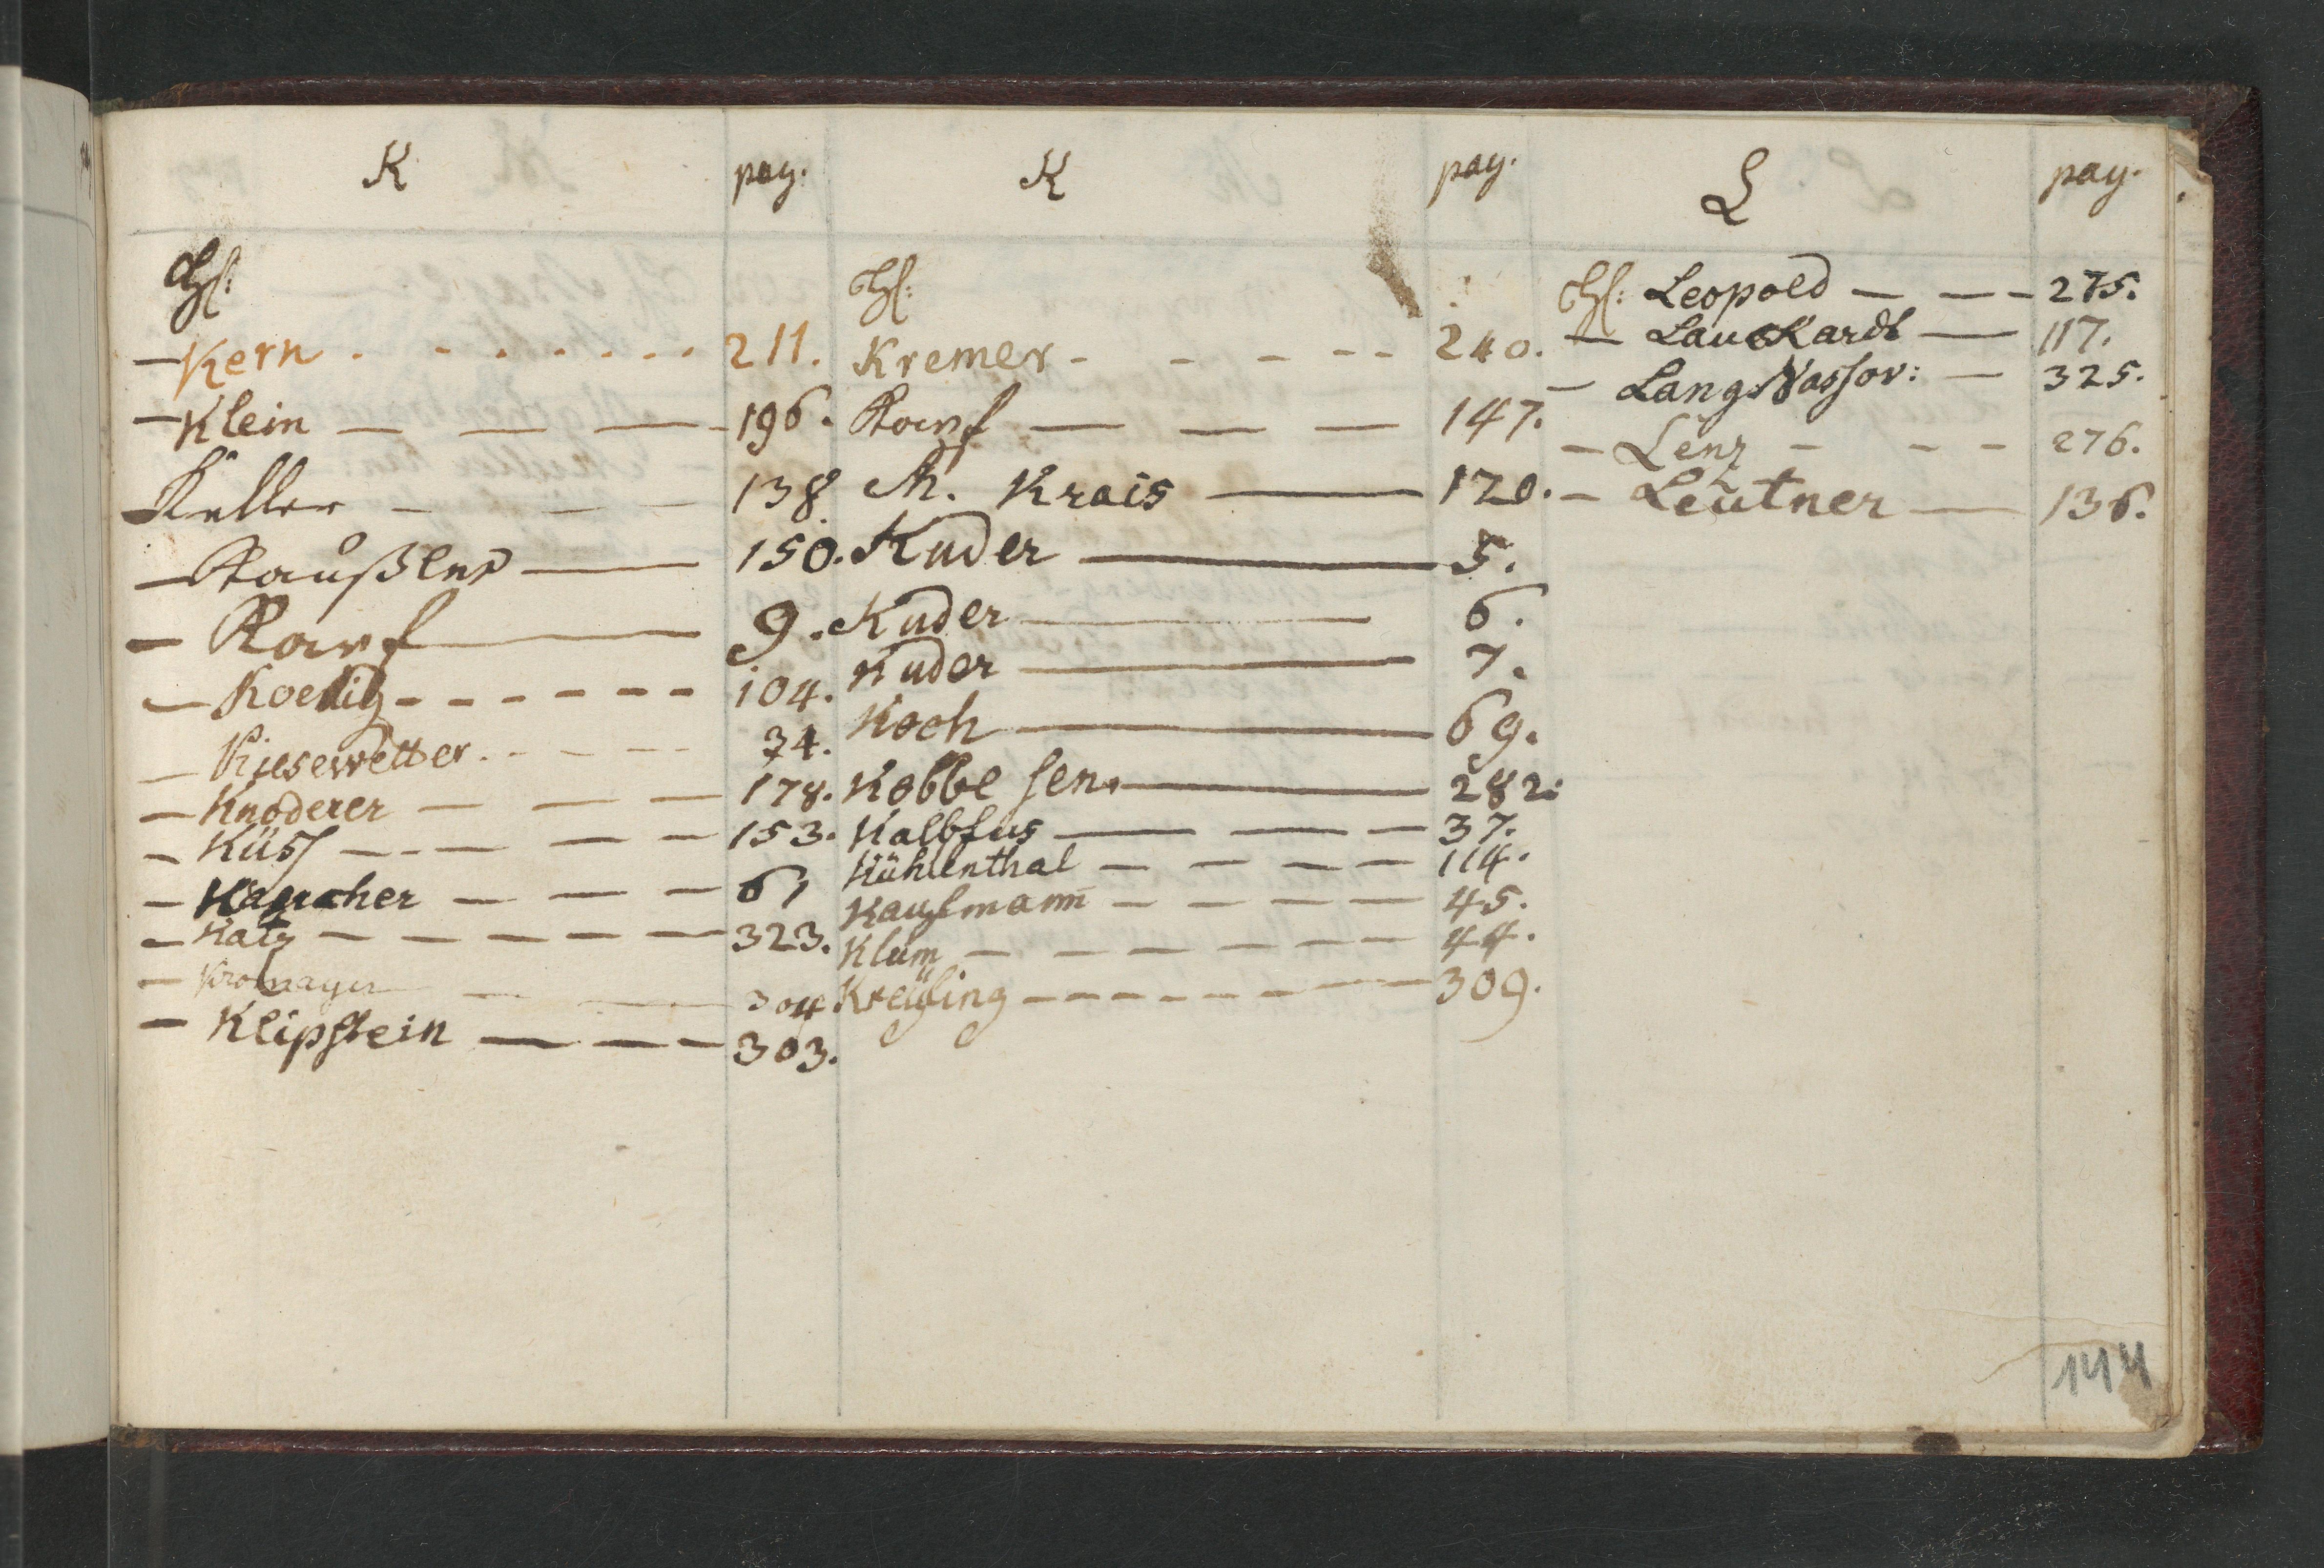 K pag.
H:
— Kern . - - . - . . . 211.
— Klein — — — 196.
Keller — — — 138.
— Kaußler — 150.
— Karpf — 9.
— Koenig - - - - - - 104.
— Kiesewetter. - - - - 34.
— Knoderer — — — 178.
— Küss — - — — — 153.
— — — — 61
— Katz — — — — — 323.
— Kromayer — — 304
— Klipstein — — — 303.
K pag.
H:
Kremer - - - - - 240.
Karpf — — — 147.
M. Krais — 120.
Kuder — 5.
Kuder — 6.
Kuder — 7.
Koch — 69.
Kobbe sen. — 282.
Kalbfus — — — 37.
Kühlenthal — — — — 114.
Kaufmann — — — — 45.
Klum — — — — — 44.
309.
L pag.
H: Leopold — — - 275.
— Lauckardt — 117.
— Lang. Nassov: — 325.
— Lenz — - - 276.
— Leutner — 136.
144